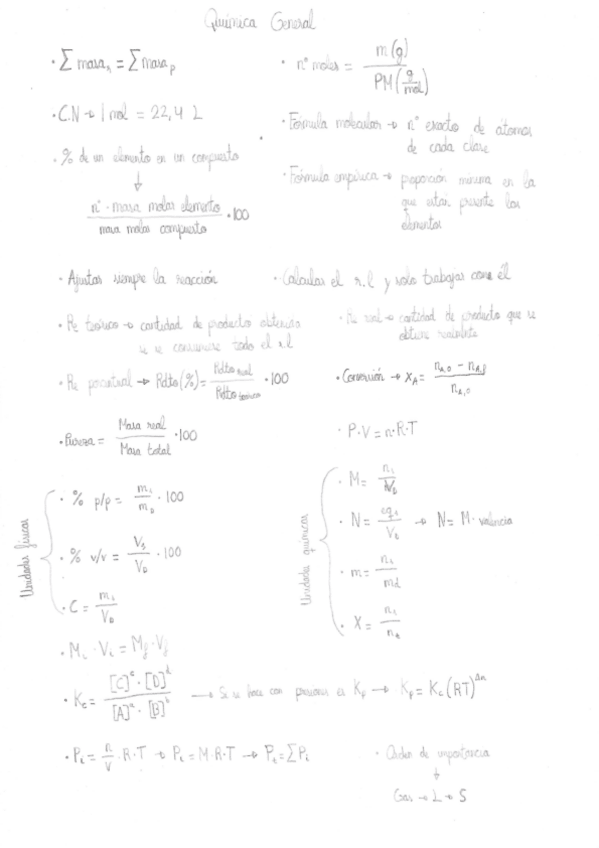 Química General
· Σ masa_r = Σ masa_p
· nº moles = m(g) / PM(g/mol)
· C.N → 1 mol = 22,4 L
· Fórmula molecular → nº exacto de átomos
de cada clase
· % de un elemento en un compuesto
↓
nº · masa molar elemento / masa molar compuesto · 100
· Fórmula empírica → proporción mínima en la
que están presente los
elementos
· Ajustar siempre la reacción
· Calcular el r.l y solo trabajar con él
· Re teórico → cantidad de producto obtenida
si se consumiese todo el r.l
· Re real → cantidad de producto que se
obtiene realmente
· Re porcentual → Rdto(%) = Rdto real / Rdto teórico · 100
· Conversión → X_A = (n_A,0 - n_A,f) / n_A,0
· Pureza = Masa real / Masa total · 100
· P·V = n·R·T
Unidades físicas
· % p/p = m_s / m_D · 100
· % v/v = V_s / V_D · 100
· C = m_s / V_D
Unidades químicas
· M = n_s / V_D
· N = eq_s / V_D → N = M · valencia
· m = n_s / m_d
· X = n_s / n_D
· M_i · V_i = M_f · V_f
· K_c = [C]^c · [D]^d / [A]^a · [B]^b → Si se hace con presiones es K_p → K_p = K_c (RT)^Δn
· P_i = n/V · R · T → P_i = M·R·T → P_t = ΣP_i
· Orden de importancia
↓
Gas → L → S